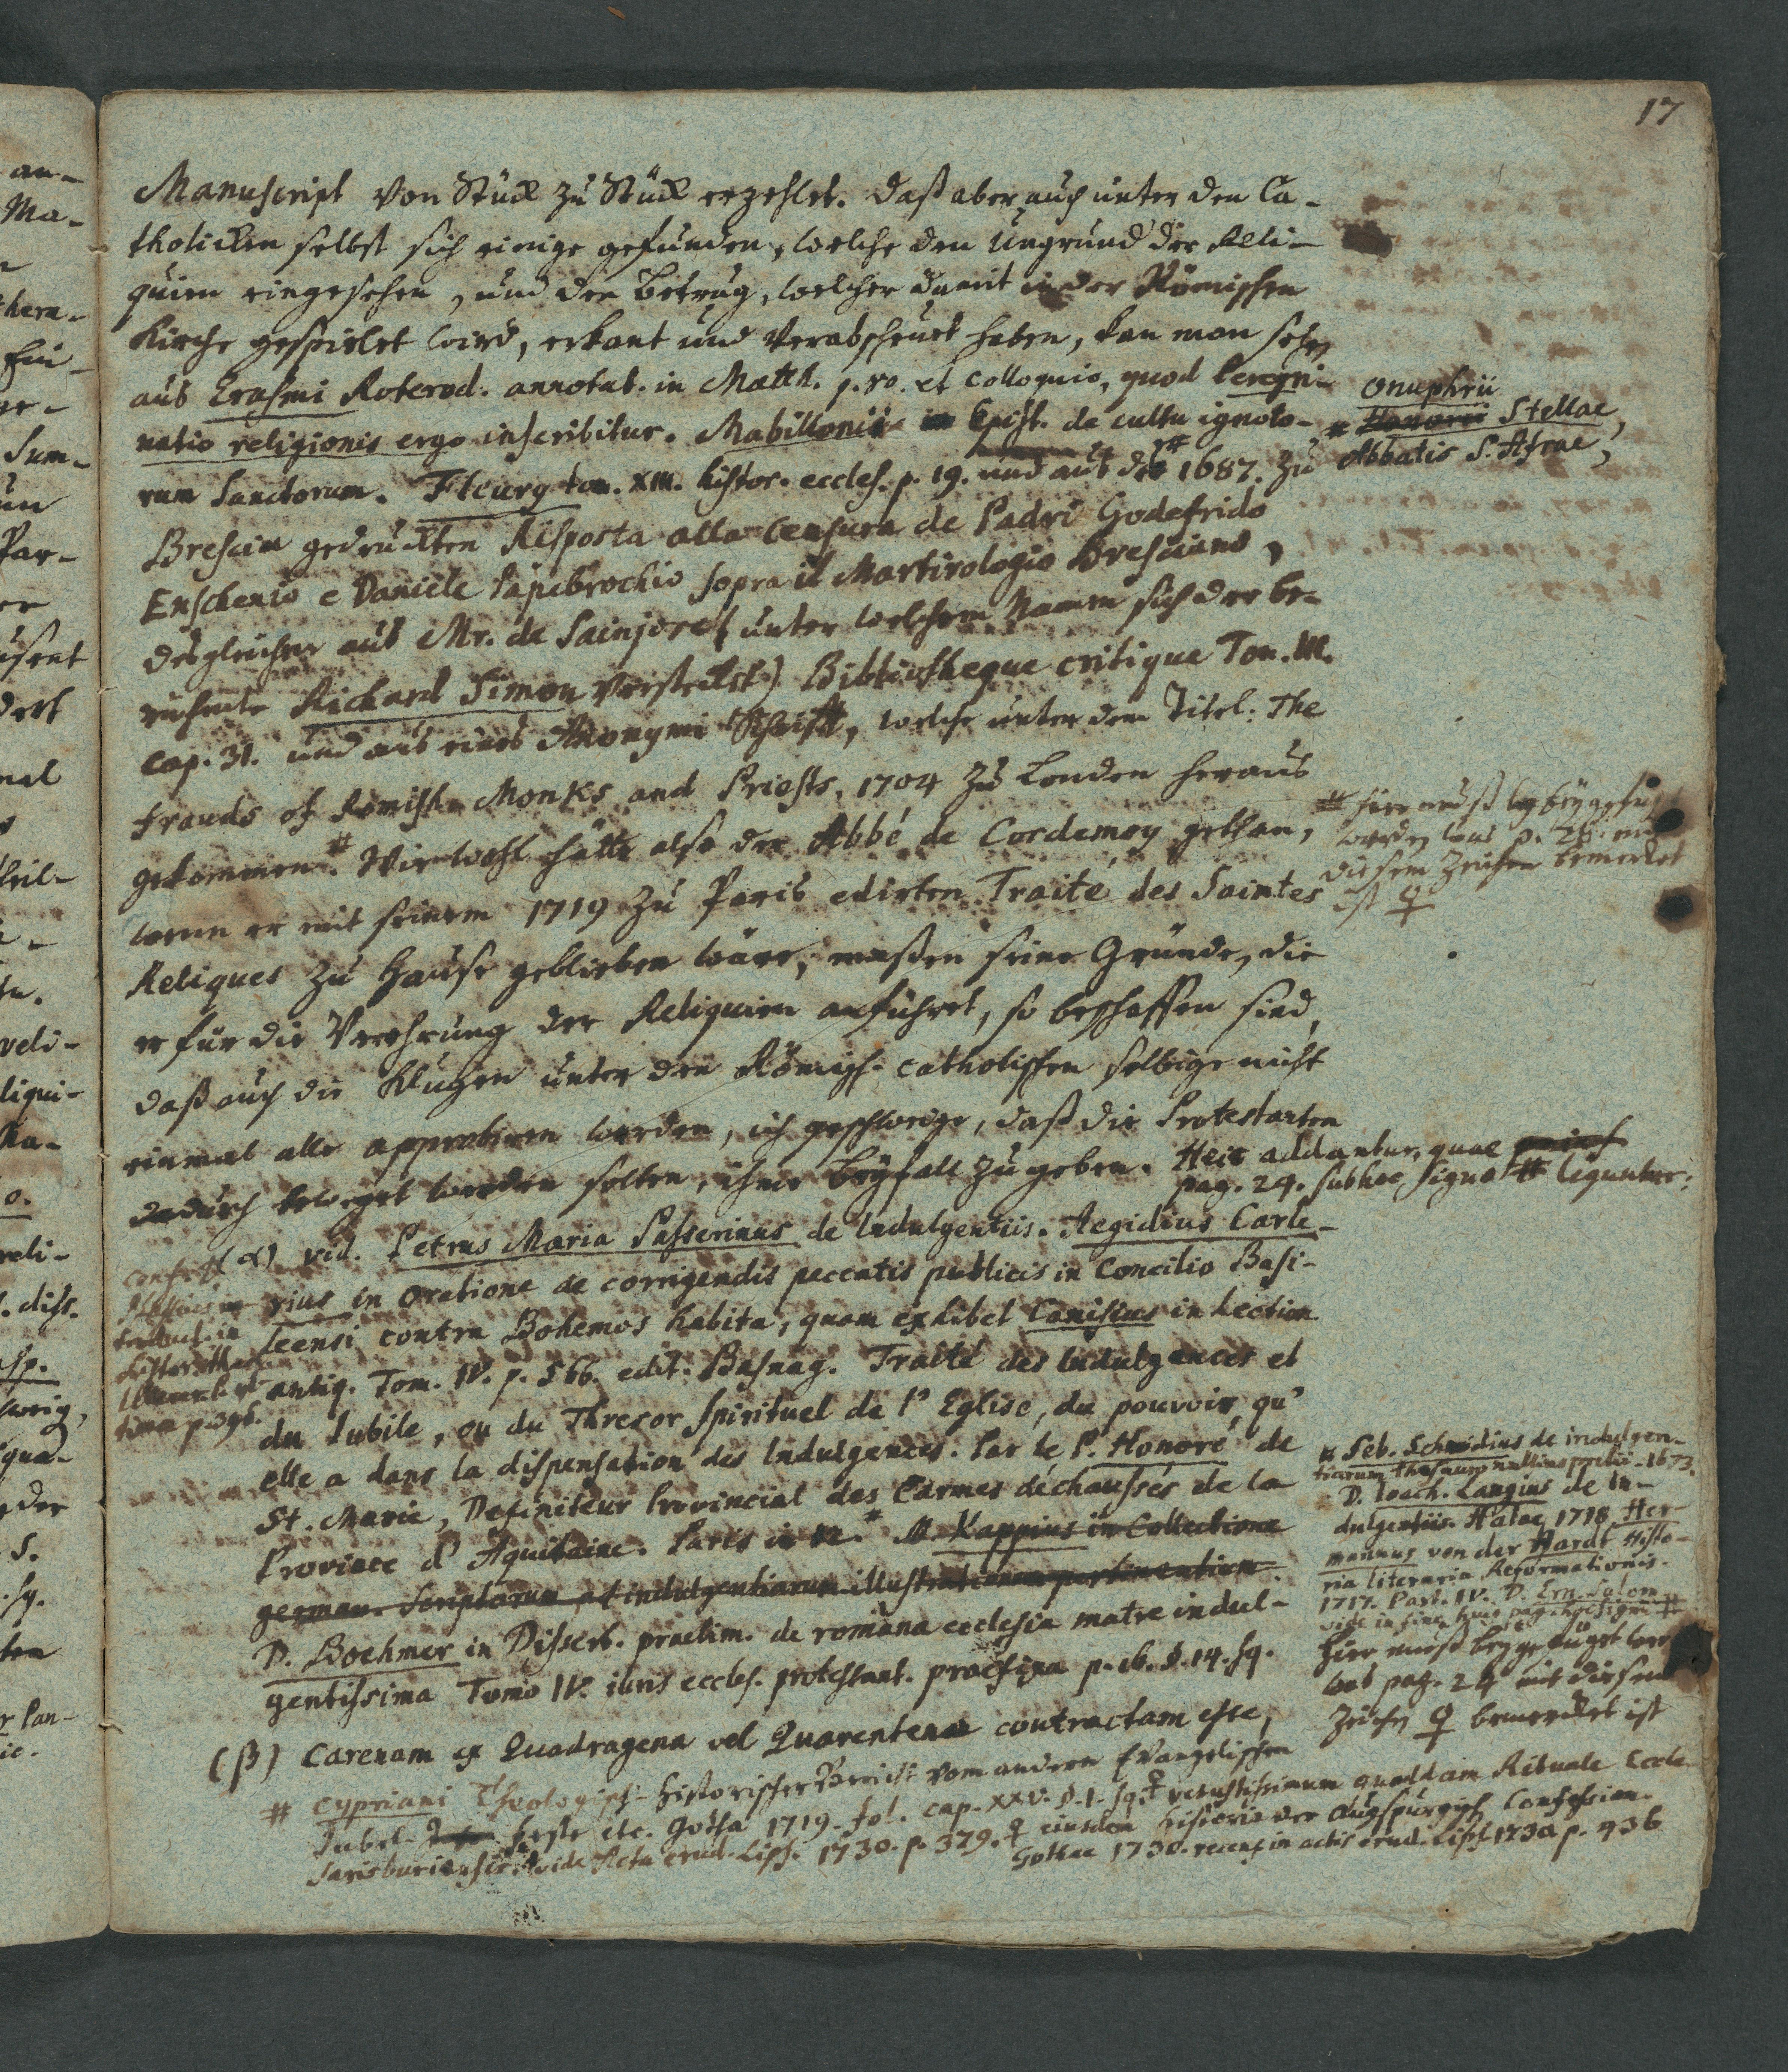 17
Manuscript von Stück zu Stück erzehlet. Daß aber auch unter den Ca-
tholicken selbst sich einige gefunden, welche den Ungrund der Reli-
quien eingesehen, und den Betrug, welcher damit in der Römischen
Kirche gespielet wird, erkant und verabscheuet haben, kan man sehen
aus Erasmi Roterod. annotat. in Matth. p. et Colloquio, quod Peregri-
natio religionis ergo inscribitur. Mabillonii Epist. de cultu ignoto-
rum Sanctorum. Fleury tom. XIII. histor. eccles. p. 19. und aus der # 1687. zu
Brescia gedruckten Risposta alla Censura de Padri Godefrido
Enschenio e Daniele Papebrochio sopra il Martirologio Bresciano,
desgleichen aus Mr. de Sainjore (unter welchem Namen sich der be-
rühmte Richard Simon verstellet) Bibliotheque critique Tom. III.
cap. 31. und aus eines Anonymi Schrifft, welche unter dem Titel: The
frauds of Romish Monks and Priests, 1704 zu London heraus
gekommen.# Wie wohl hätte also der Abbé de Cordemoy gethan,
wenn er mit seinem 1719 zu Paris edirten Traité des Saintes
Reliques zu Hause geblieben wäre, maßen seine Gründe, die
er für die Verehrung der Reliquien anführet, so beschaffen sind,
daß auch die Klugen unter den Römisch-catholischen selbige nicht
einmal alle approbiren werden, ich geschweige, daß die Protestanten
dadurch beweget werden solten, ihnen Beyfall zu geben.
Onuphrii
# Honorii Stellae,
Abbatis S. Afrae,
# hier muß beygefügt
werden was p. 24. mit
diesem Zeichen bemerket
ist ♀
Heic addantur, quae
pag. 24. sub hoc signo # leguntur:
(α) vid. Petrus Maria Passerinus de Indulgentiis. Aegidius Carle-
rius in oratione de corrigendis peccatis publicis in Concilio Basi-
leensi contra Bohemos habita, quam exhibet Canisius in Lection
antiq. Tom. IV. p. 566. edit. Basnag. Traité des Indulgences et
du Jubile, ou du Thresor spirituel de l'Eglise, du pouvoir, qu'
elle a dans la dispensation des Indulgences. Par le P. Honoré de
St. Marie, Definiteur Provincial des Carmes déchaussés de la
Province d'Aquitaine. Paris in 12.* M. Kappius in Collectione
german. Scriptorum ad indulgentiarum illustrationem pertinentium.
D. Boehmer in Dissert. praelim. de romana ecclesia matre indul-
gentissima Tomo IV. iuris eccles. protestant. praefixa p. §. 14. sq.
tina p. 396.
# Seb. Schmidius de indulgen-
tiarum thesauro nullius pretii. 1673.
D. Ioach. Langius de In-
dulgentiis. Halae 1718 Her-
mannus von der Hardt Histo-
ria literaria Reformationis.
1717. Part. IV. D. Ern. Salom
vide in fine huius pag. hoc signum #
hier muß beygefüget werden
was pag. 24 mit diesem
Zeichen ♀ bemercket ist
(β) Carenam ex Quadragena vel Quarentena contractam esse,
# Cypriani Theologisch-historischer Bericht vom andern Evangelischen
Jubel- Feste etc. Gotha 1719. fol. cap. XXV. §. 1. sq. vetustissimum quoddam Rituale Eccle
Sarisburiensis vide Acta erud. Lips. 1730. p. 379. ♀ eiusdem Historie der Augspurgisch Confession.
Gothae 1730. recens in actis erud. Lips. 1730 p. 436